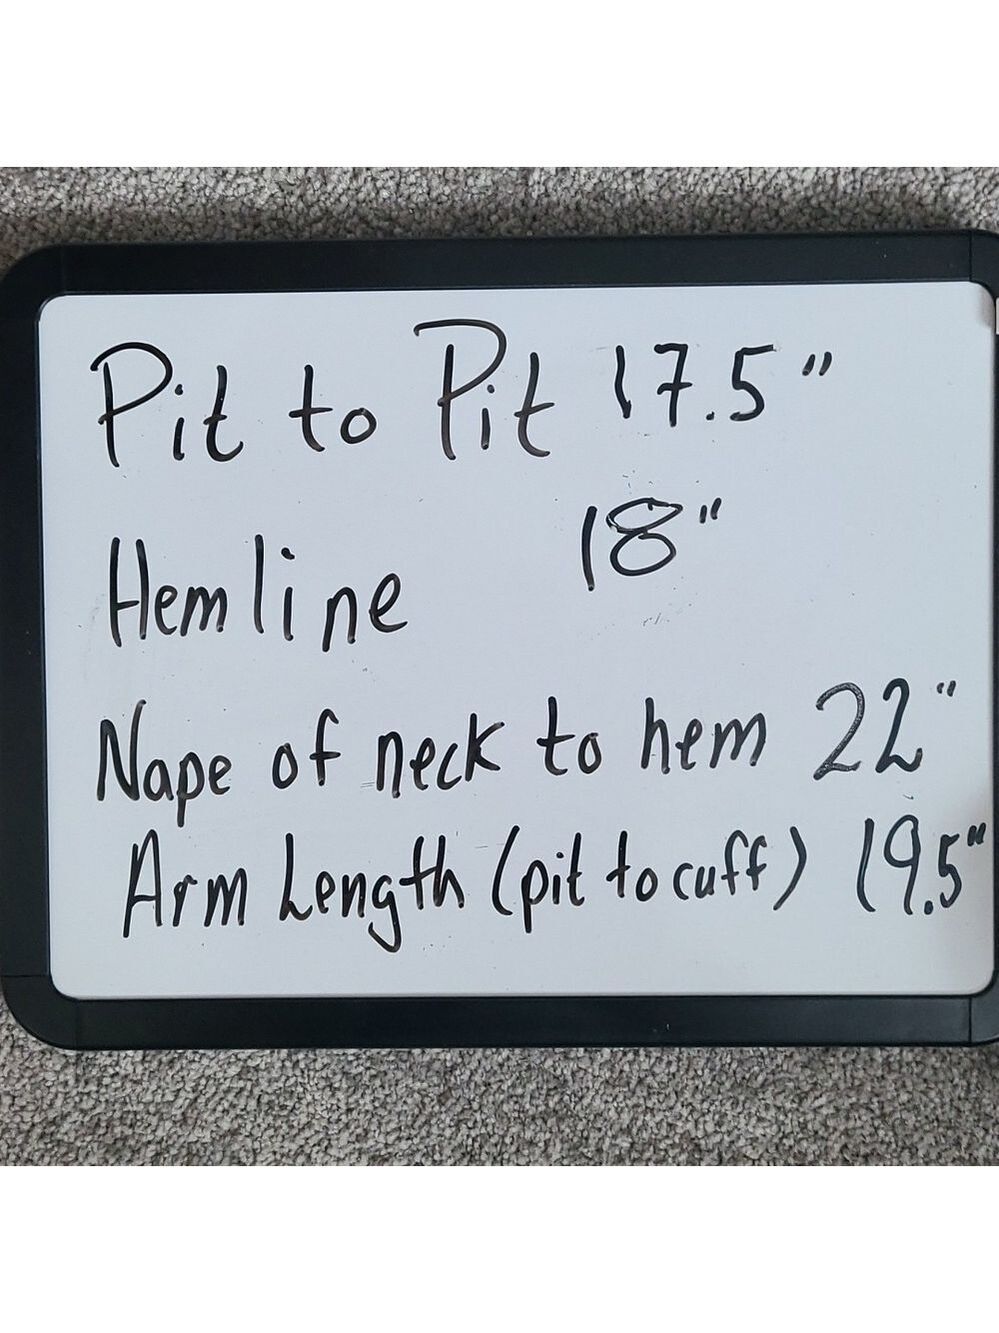 Pit to Pit 17.5"
Hemline 18"
Nape of neck to hem 22"
Arm Length (pit to cuff) 19.5"